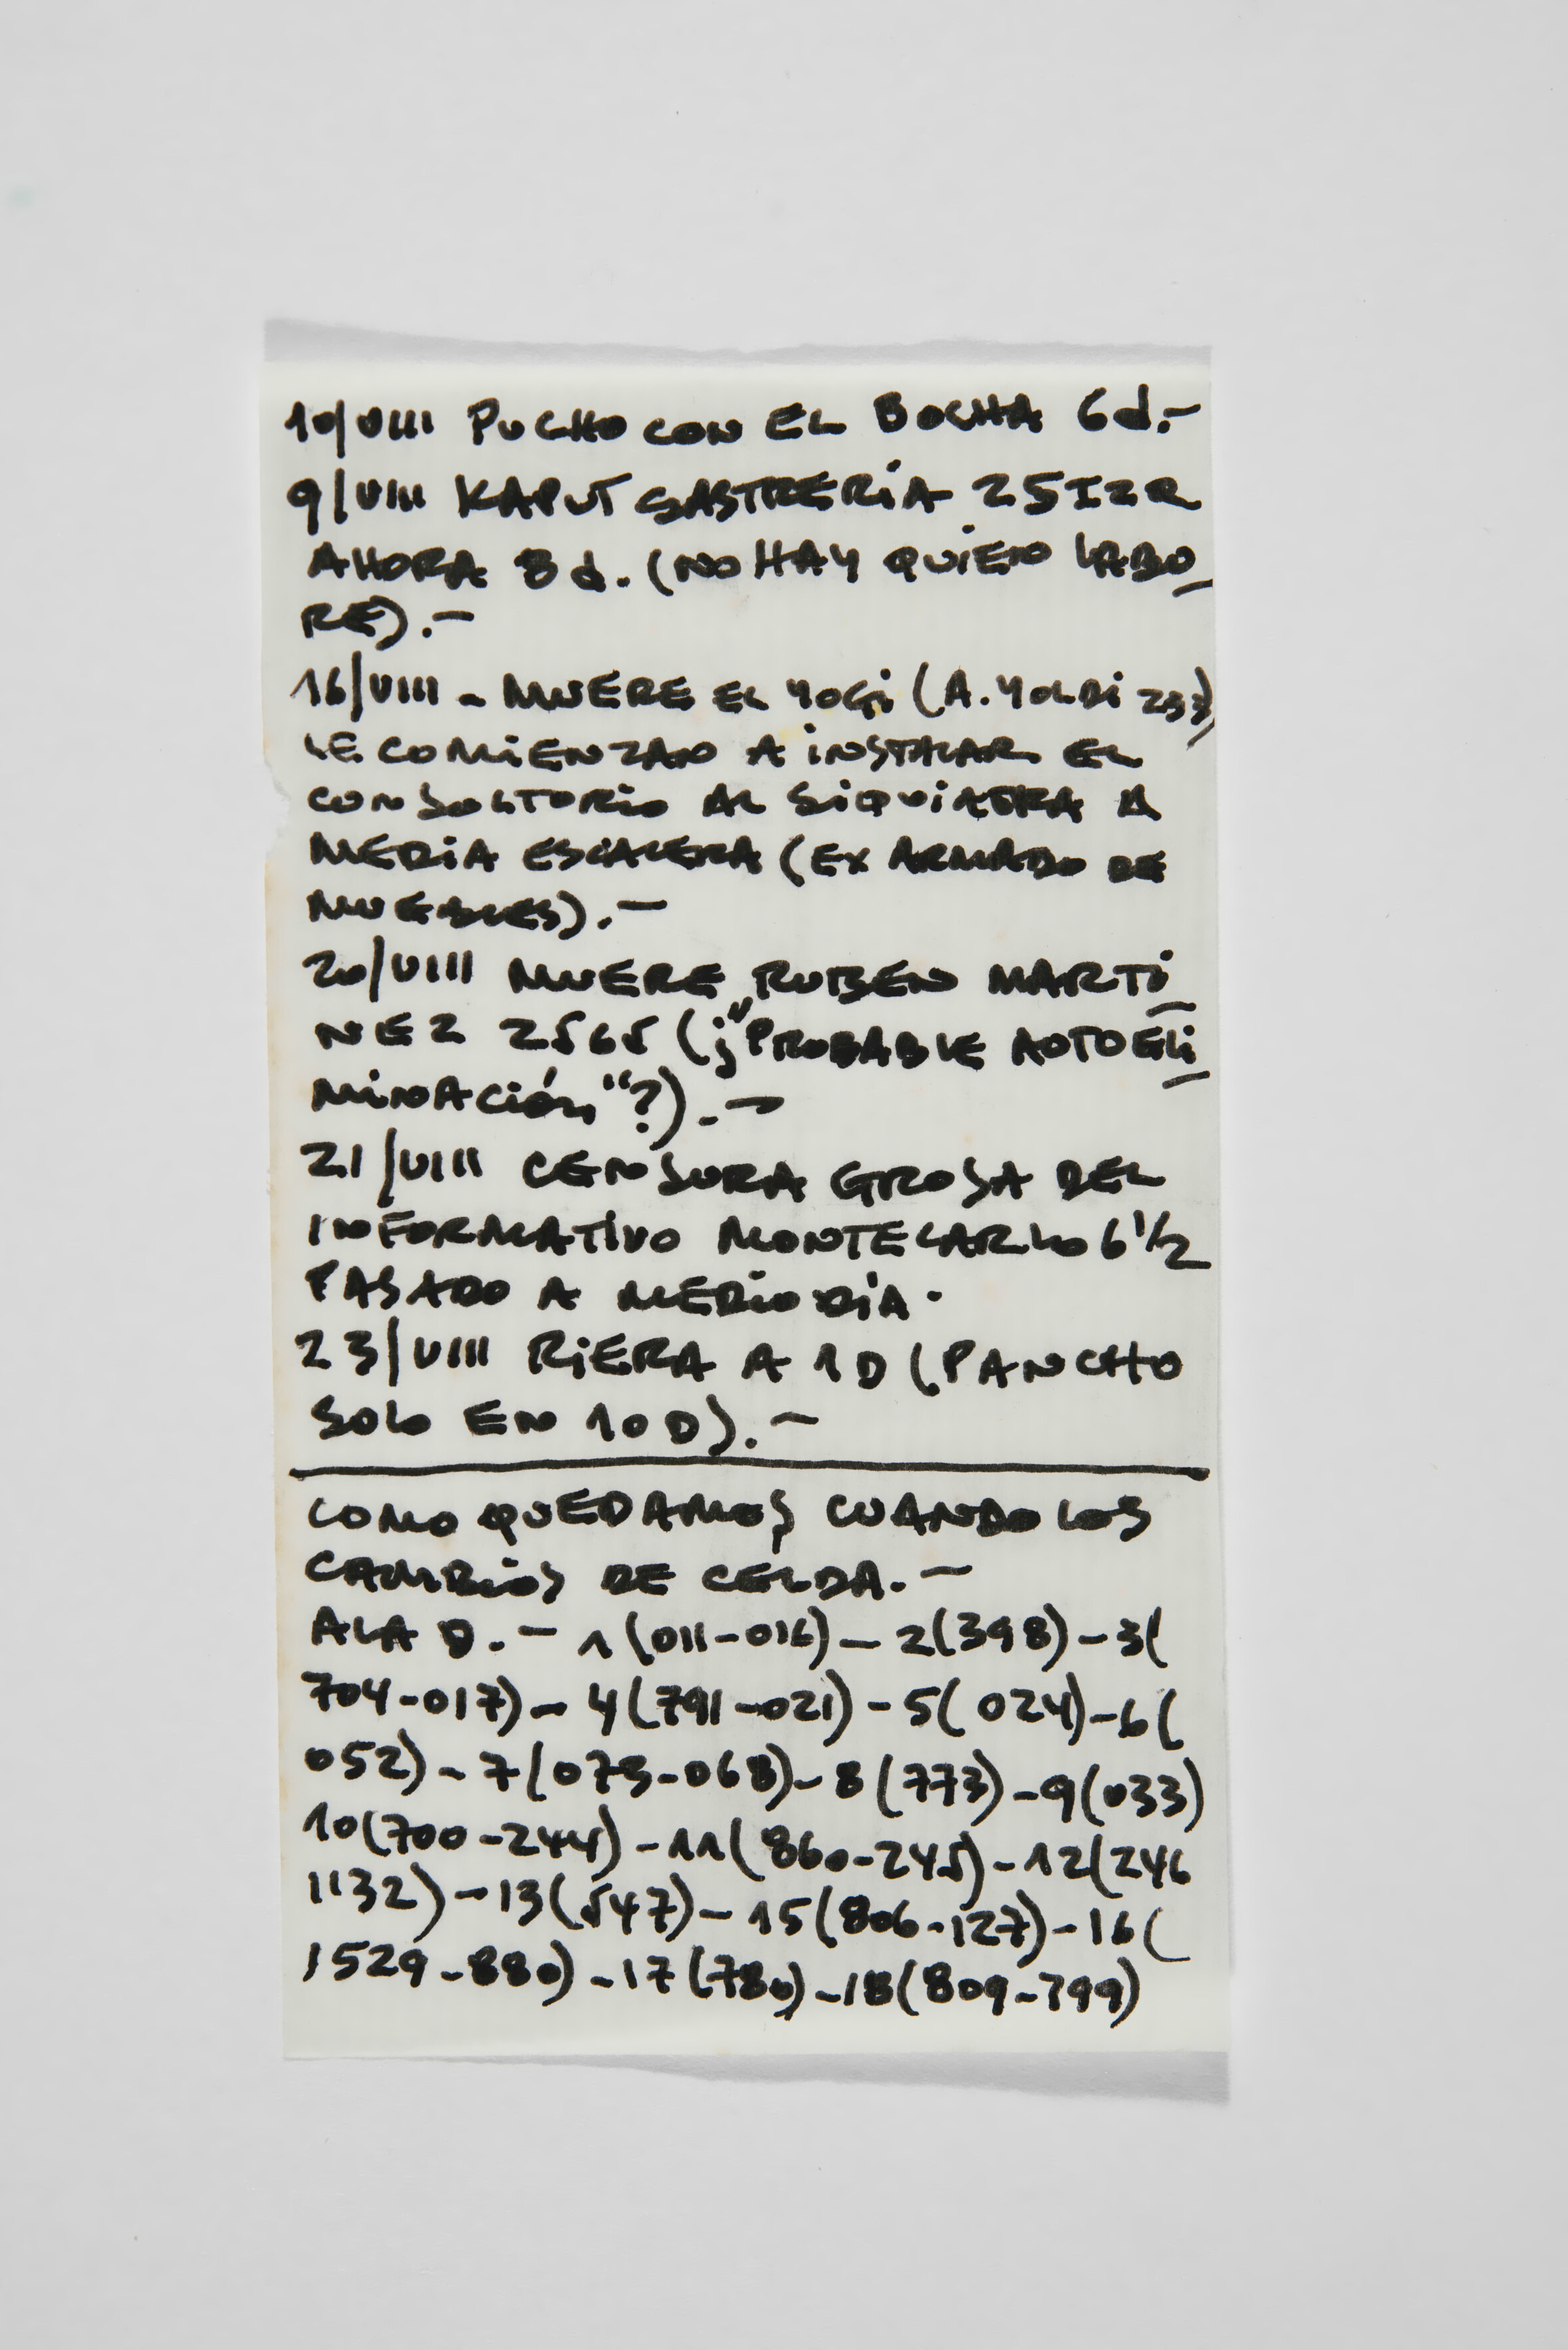 10/VIII PUCHO CON EL BOCHA 6d.-
9/VIII KAPUT SASTRERÍA 25 IZR
AHORA 8 d. (NO HAY QUIEN LABO_
RE).-
16/VIII - MUERE EL YOGI (A. YOLDI 297)
LE COMIENZAN A INSTALAR EL
CONSULTORIO AL SIQUIATRA A
MEDIA ESCALERA (EX ARMADO DE
MUEBLES).-
20/VIII MUERE RUBEN MARTI_
NEZ 2565 (¿"PROBABLE AUTOELI_
MINACIÓN"?).-
21/VIII CENSURA GROSA DEL
INFORMATIVO MONTECARLO 6 1/2
PASADO A MEDIO DÍA.
23/VIII RIERA A 1D (PANCHO
SOLO EN 10 D).-
COMO QUEDAMOS CUANDO LOS
CAMBIOS DE CELDA.-
ALA D.- 1(011-016)-2(398)-3(
704-017)-4(791-021)-5(024)-6(
052)-7(073-068)-8(773)-9(033)
10(700-244)-11(860-245)-12(246
1132)-13(547)-15(806-127)-16(
1529-880)-17(780)-18(809-799)